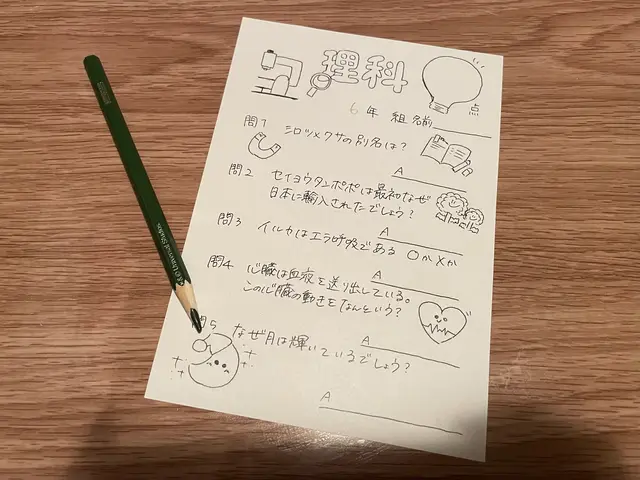 理科
点
6年 組 名前
問1 シロツメクサの別名は?
A
問2 セイヨウタンポポは最初なぜ
日本に輸入されたでしょう?
A
問3 イルカはエラ呼吸である ○か×か
A
問4 心臓は血液を送り出している。
この心臓の動きをなんという?
A
問5 なぜ月は輝いているでしょう?
A
Universal Studios